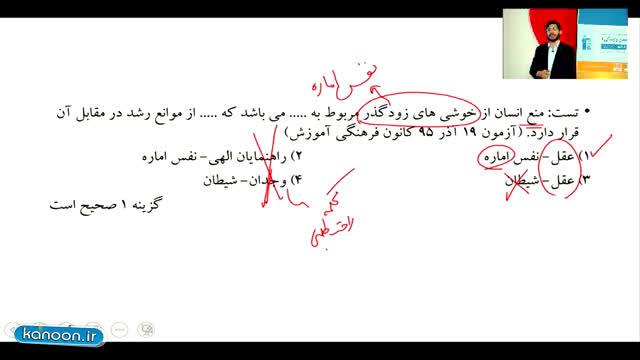 نفس اماره
• تست: منع انسان از خوشی های زودگذر مربوط به ..... می باشد که ..... از موانع رشد در مقابل آن
قرار دارد: (آزمون ۱۹ آذر ۹۵ کانون فرهنگی آموزش)
۱) عقل- نفس اماره ۲) راهنمایان الهی- نفس اماره
۳) عقل- شیطان ۴) وجدان- شیطان
گزینه ۱ صحیح است
kanoon.ir